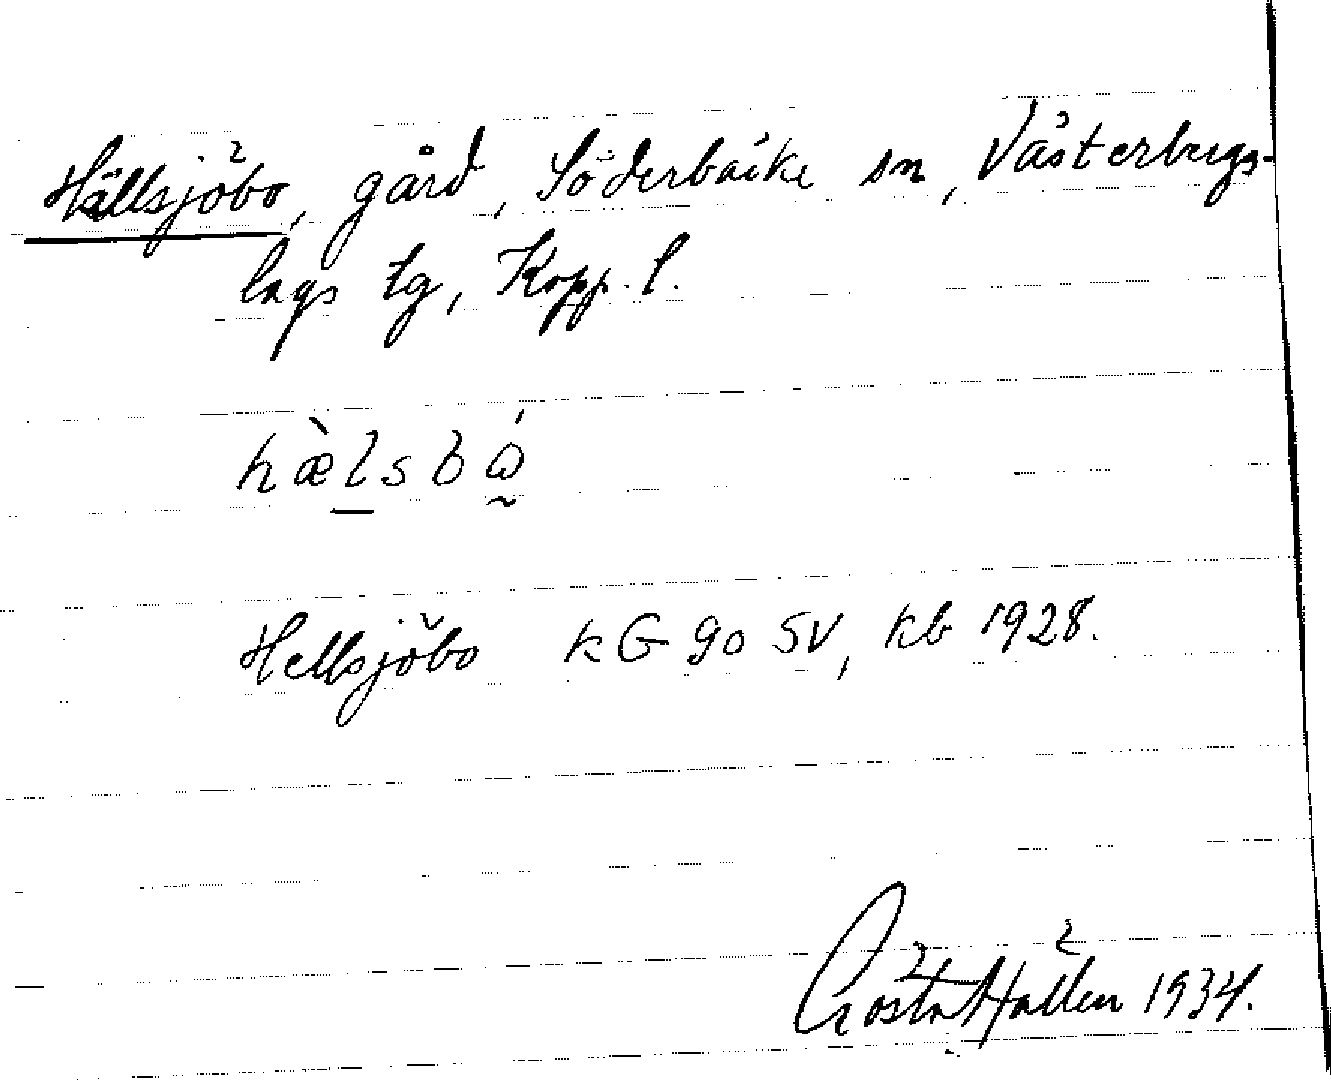 Hällsjöbo, gård, Söderbärke sn, Västerbergs-
lags tg, Kopp. l.
hæ̀lsbó̰
Hellsjöbo kG 90 SV, kb 1928.
Gösta Hallén 1934.